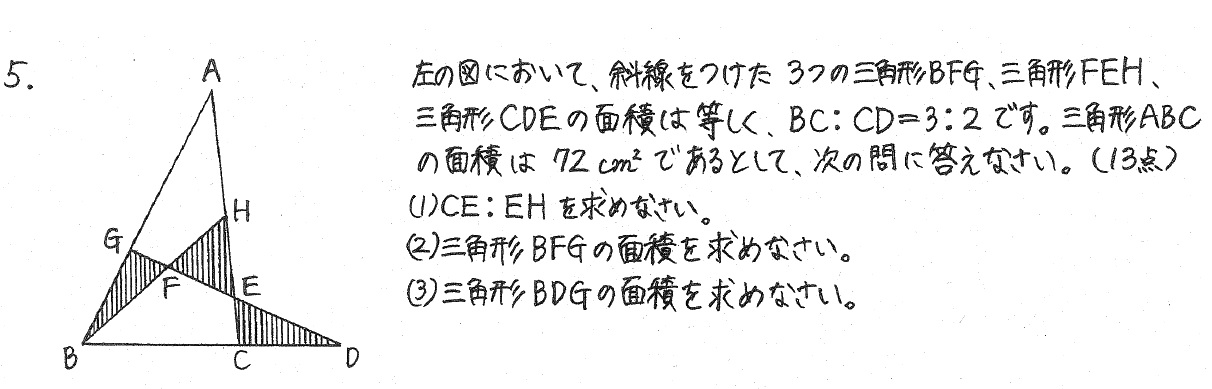 5.
左の図において、斜線をつけた 3つの三角形BFG、三角形FEH、
三角形CDEの面積は等しく、BC:CD=3:2です。三角形ABC
の面積は 72cm²であるとして、次の問に答えなさい。(13点)
(1)CE:EHを求めなさい。
(2)三角形BFGの面積を求めなさい。
(3)三角形BDGの面積を求めなさい。
A
H
G
F
E
B
C
D